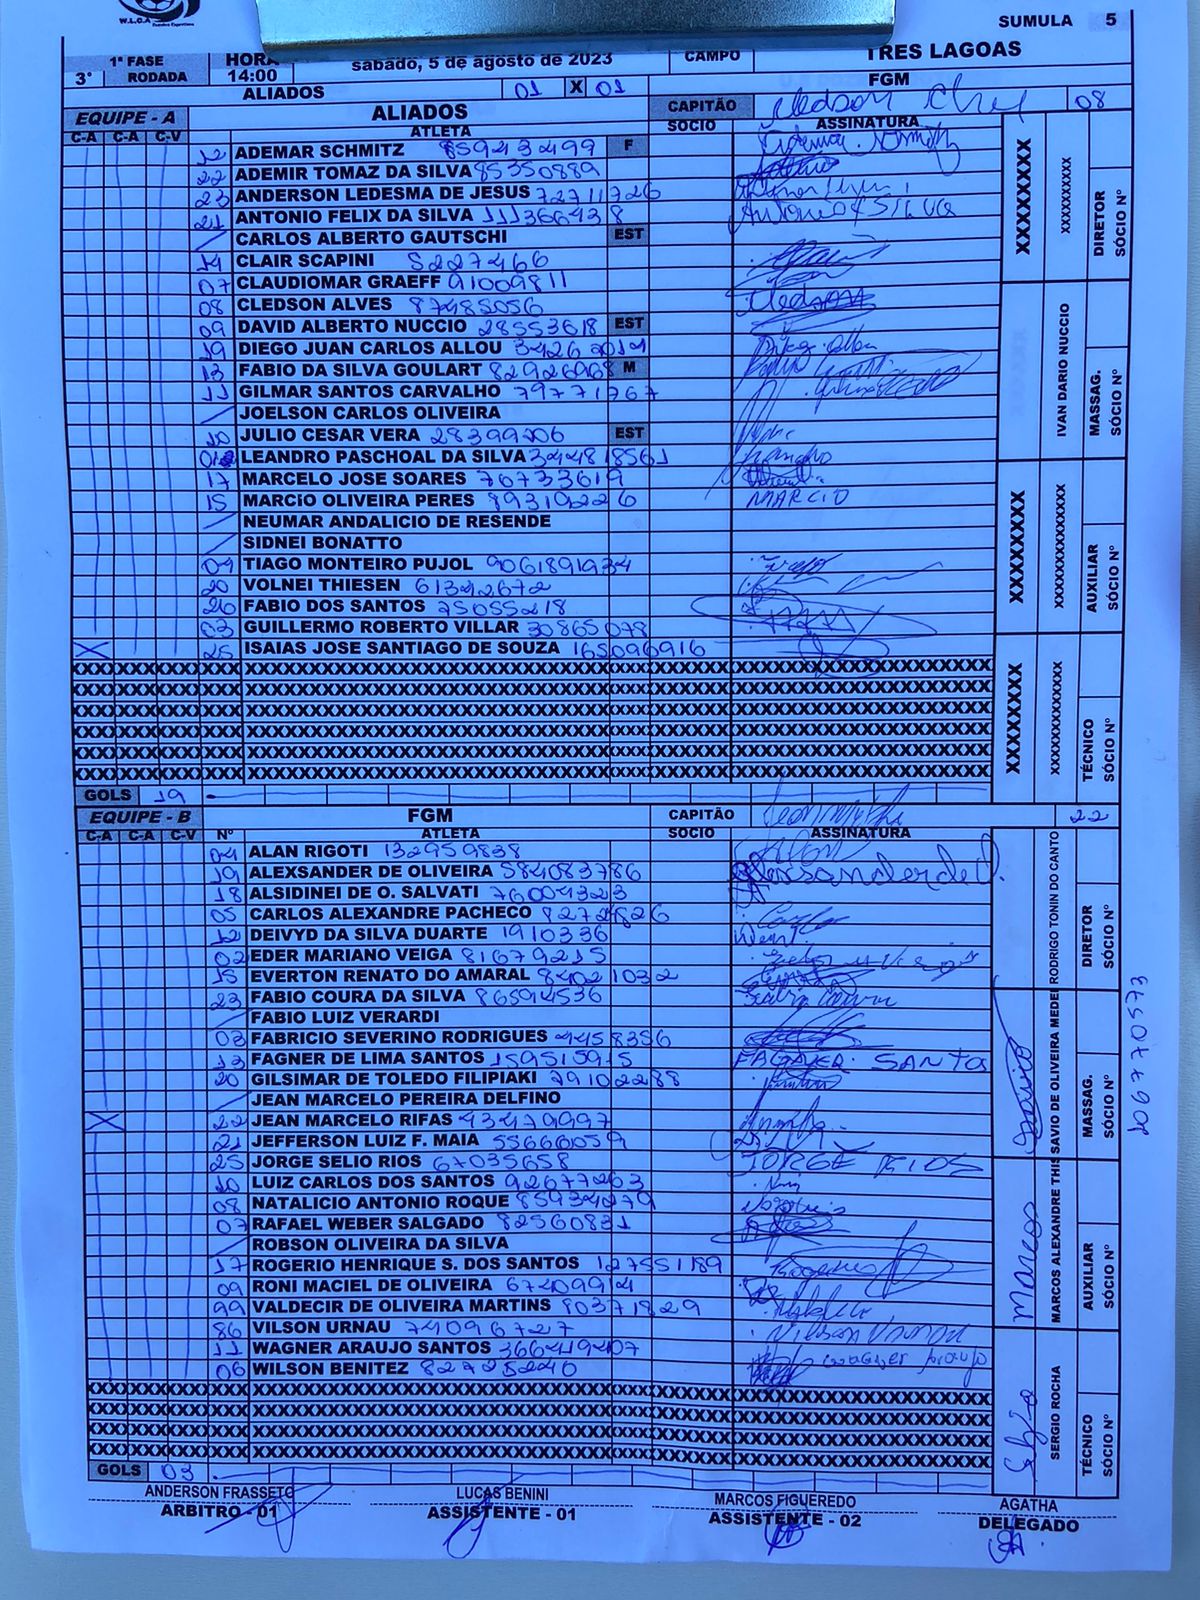 W.L.C.A
SUMULA 5
1ª FASE
3° RODADA
HORA
14:00
sábado, 5 de agosto de 2023
CAMPO
TRES LAGOAS
ALIADOS 01 X 01 FGM
EQUIPE - A ALIADOS CAPITÃO 08
C-A C-A C-V ATLETA SÓCIO ASSINATURA
12 ADEMAR SCHMITZ 85943499 F
22 ADEMIR TOMAZ DA SILVA 85350889
23 ANDERSON LEDESMA DE JESUS 72711726
21 ANTONIO FELIX DA SILVA 111366438
CARLOS ALBERTO GAUTSCHI EST
14 CLAIR SCAPINI 5227466
07 CLAUDIOMAR GRAEFF 91009811
08 CLEDSON ALVES 87485056
09 DAVID ALBERTO NUCCIO 28553618 EST
19 DIEGO JUAN CARLOS ALLOU
13 FABIO DA SILVA GOULART 82926968 M
11 GILMAR SANTOS CARVALHO 79771767
JOELSON CARLOS OLIVEIRA
10 JULIO CESAR VERA 28399206 EST
LEANDRO PASCHOAL DA SILVA
17 MARCELO JOSE SOARES 76733619
15 MARCiO OLIVEIRA PERES 89319226 MARCIO
NEUMAR ANDALICIO DE RESENDE
SIDNEI BONATTO
04 TIAGO MONTEIRO PUJOL
20 VOLNEI THIESEN 61342672
26 FABIO DOS SANTOS 75055218
03 GUILLERMO ROBERTO VILLAR 30865078
25 ISAIAS JOSE SANTIAGO DE SOUZA 165096916
GOLS 19
XXXXXXXX XXXXXXXXX DIRETOR SÓCIO Nº
IVAN DARIO NUCCIO MASSAG. SÓCIO Nº
XXXXXXXX XXXXXXXXXXXXXX AUXILIAR SÓCIO Nº
XXXXXXXX XXXXXXXXXXXXX TÉCNICO SÓCIO Nº
EQUIPE - B FGM CAPITÃO 22
C-A C-A C-V Nº ATLETA SÓCIO ASSINATURA
04 ALAN RIGOTI 132959838
19 ALEXSANDER DE OLIVEIRA 584083786
18 ALSIDINEI DE O. SALVATI 76004323
05 CARLOS ALEXANDRE PACHECO
12 DEIVYD DA SILVA DUARTE 1910336
02 EDER MARIANO VEIGA 81679215
15 EVERTON RENATO DO AMARAL 84021032
23 FABIO COURA DA SILVA 86594536
FABIO LUIZ VERARDI
03 FABRICIO SEVERINO RODRIGUES 4458356
13 FAGNER DE LIMA SANTOS 159515915
20 GILSIMAR DE TOLEDO FILIPIAKI 79102288
JEAN MARCELO PEREIRA DELFINO
22 JEAN MARCELO RIFAS 43479997
21 JEFFERSON LUIZ F. MAIA 55666059
25 JORGE SELIO RIOS 67035658 JORGE RIOS
10 LUIZ CARLOS DOS SANTOS 92677263
08 NATALICIO ANTONIO ROQUE 85934279
07 RAFAEL WEBER SALGADO 82560831
ROBSON OLIVEIRA DA SILVA
17 ROGERIO HENRIQUE S. DOS SANTOS 127551189
09 RONI MACIEL DE OLIVEIRA 67409914
99 VALDECIR DE OLIVEIRA MARTINS 80371829
86 VILSON URNAU 74096727
11 WAGNER ARAUJO SANTOS 366419407
06 WILSON BENITEZ 82725240
GOLS 03
RODRIGO TONIN DO CANTO DIRETOR SÓCIO Nº
SAVIO DE OLIVEIRA MEDEI MASSAG. SÓCIO Nº
206770573
Marcos MARCOS ALEXANDRE THIS AUXILIAR SÓCIO Nº
SERGIO ROCHA TÉCNICO SÓCIO Nº
ANDERSON FRASSETO LUCAS BENINI MARCOS FIGUEREDO AGATHA
ARBITRO - 01 ASSISTENTE - 01 ASSISTENTE - 02 DELEGADO